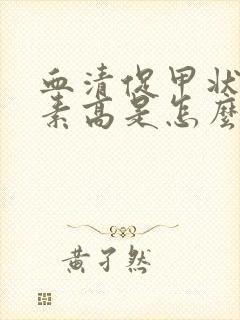 血清促甲状
素高是怎麼
黄孑然